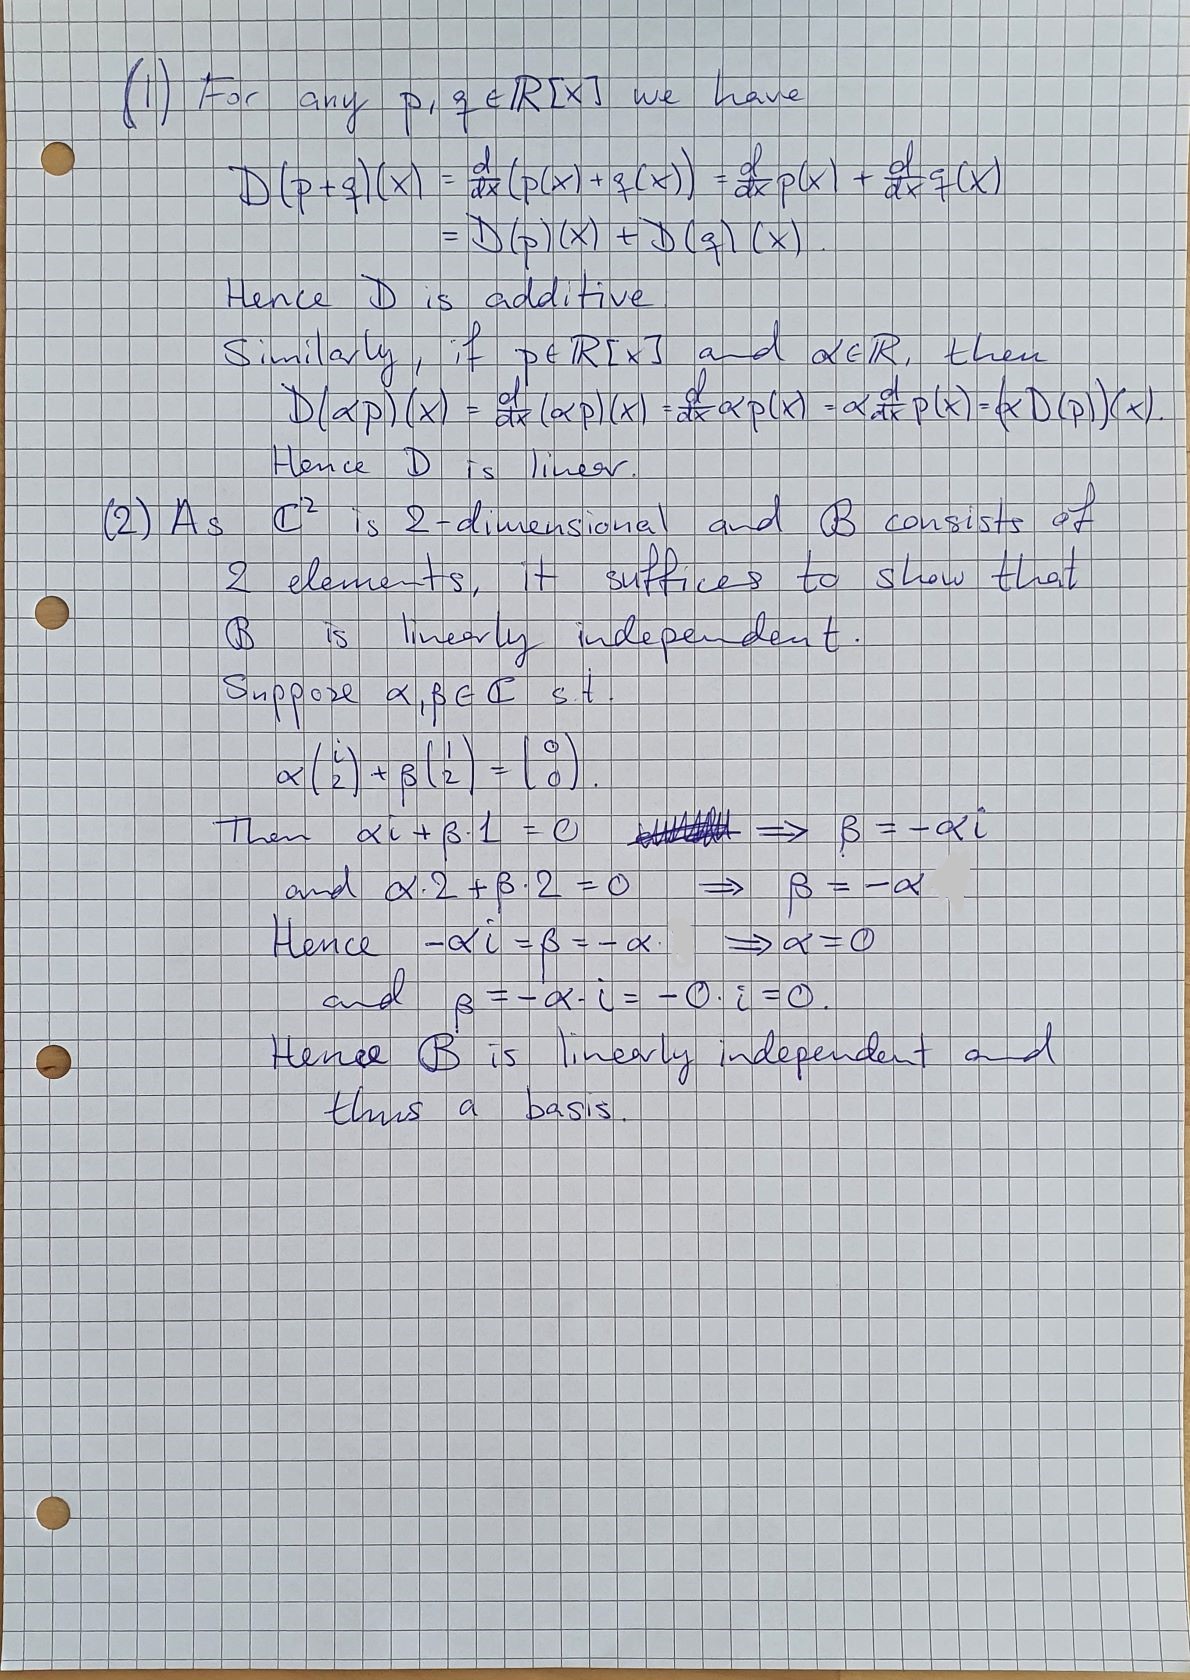 (1) For any p, q ∈ ℝ[x] we have
D(p+q)(x) = d/dx (p(x) + q(x)) = d/dx p(x) + d/dx q(x)
= D(p)(x) + D(q)(x).
Hence D is additive.
Similarly, if p ∈ ℝ[x] and α ∈ ℝ, then
D(αp)(x) = d/dx (αp)(x) = d/dx αp(x) = α d/dx p(x) = (αD(p))(x).
Hence D is linear.
(2) As ℂ² is 2-dimensional and B consists of
2 elements, it suffices to show that
B is linearly independent.
Suppose α, β ∈ ℂ s.t.
α(i 2) + β(1 2) = (0 0).
Then αi + β·1 = 0 ⇒ β = -αi
and α·2 + β·2 = 0 ⇒ β = -α
Hence -αi = β = -α. ⇒ α = 0
and β = -α·i = -0·i = 0.
Hence B is linearly independent and
thus a basis.